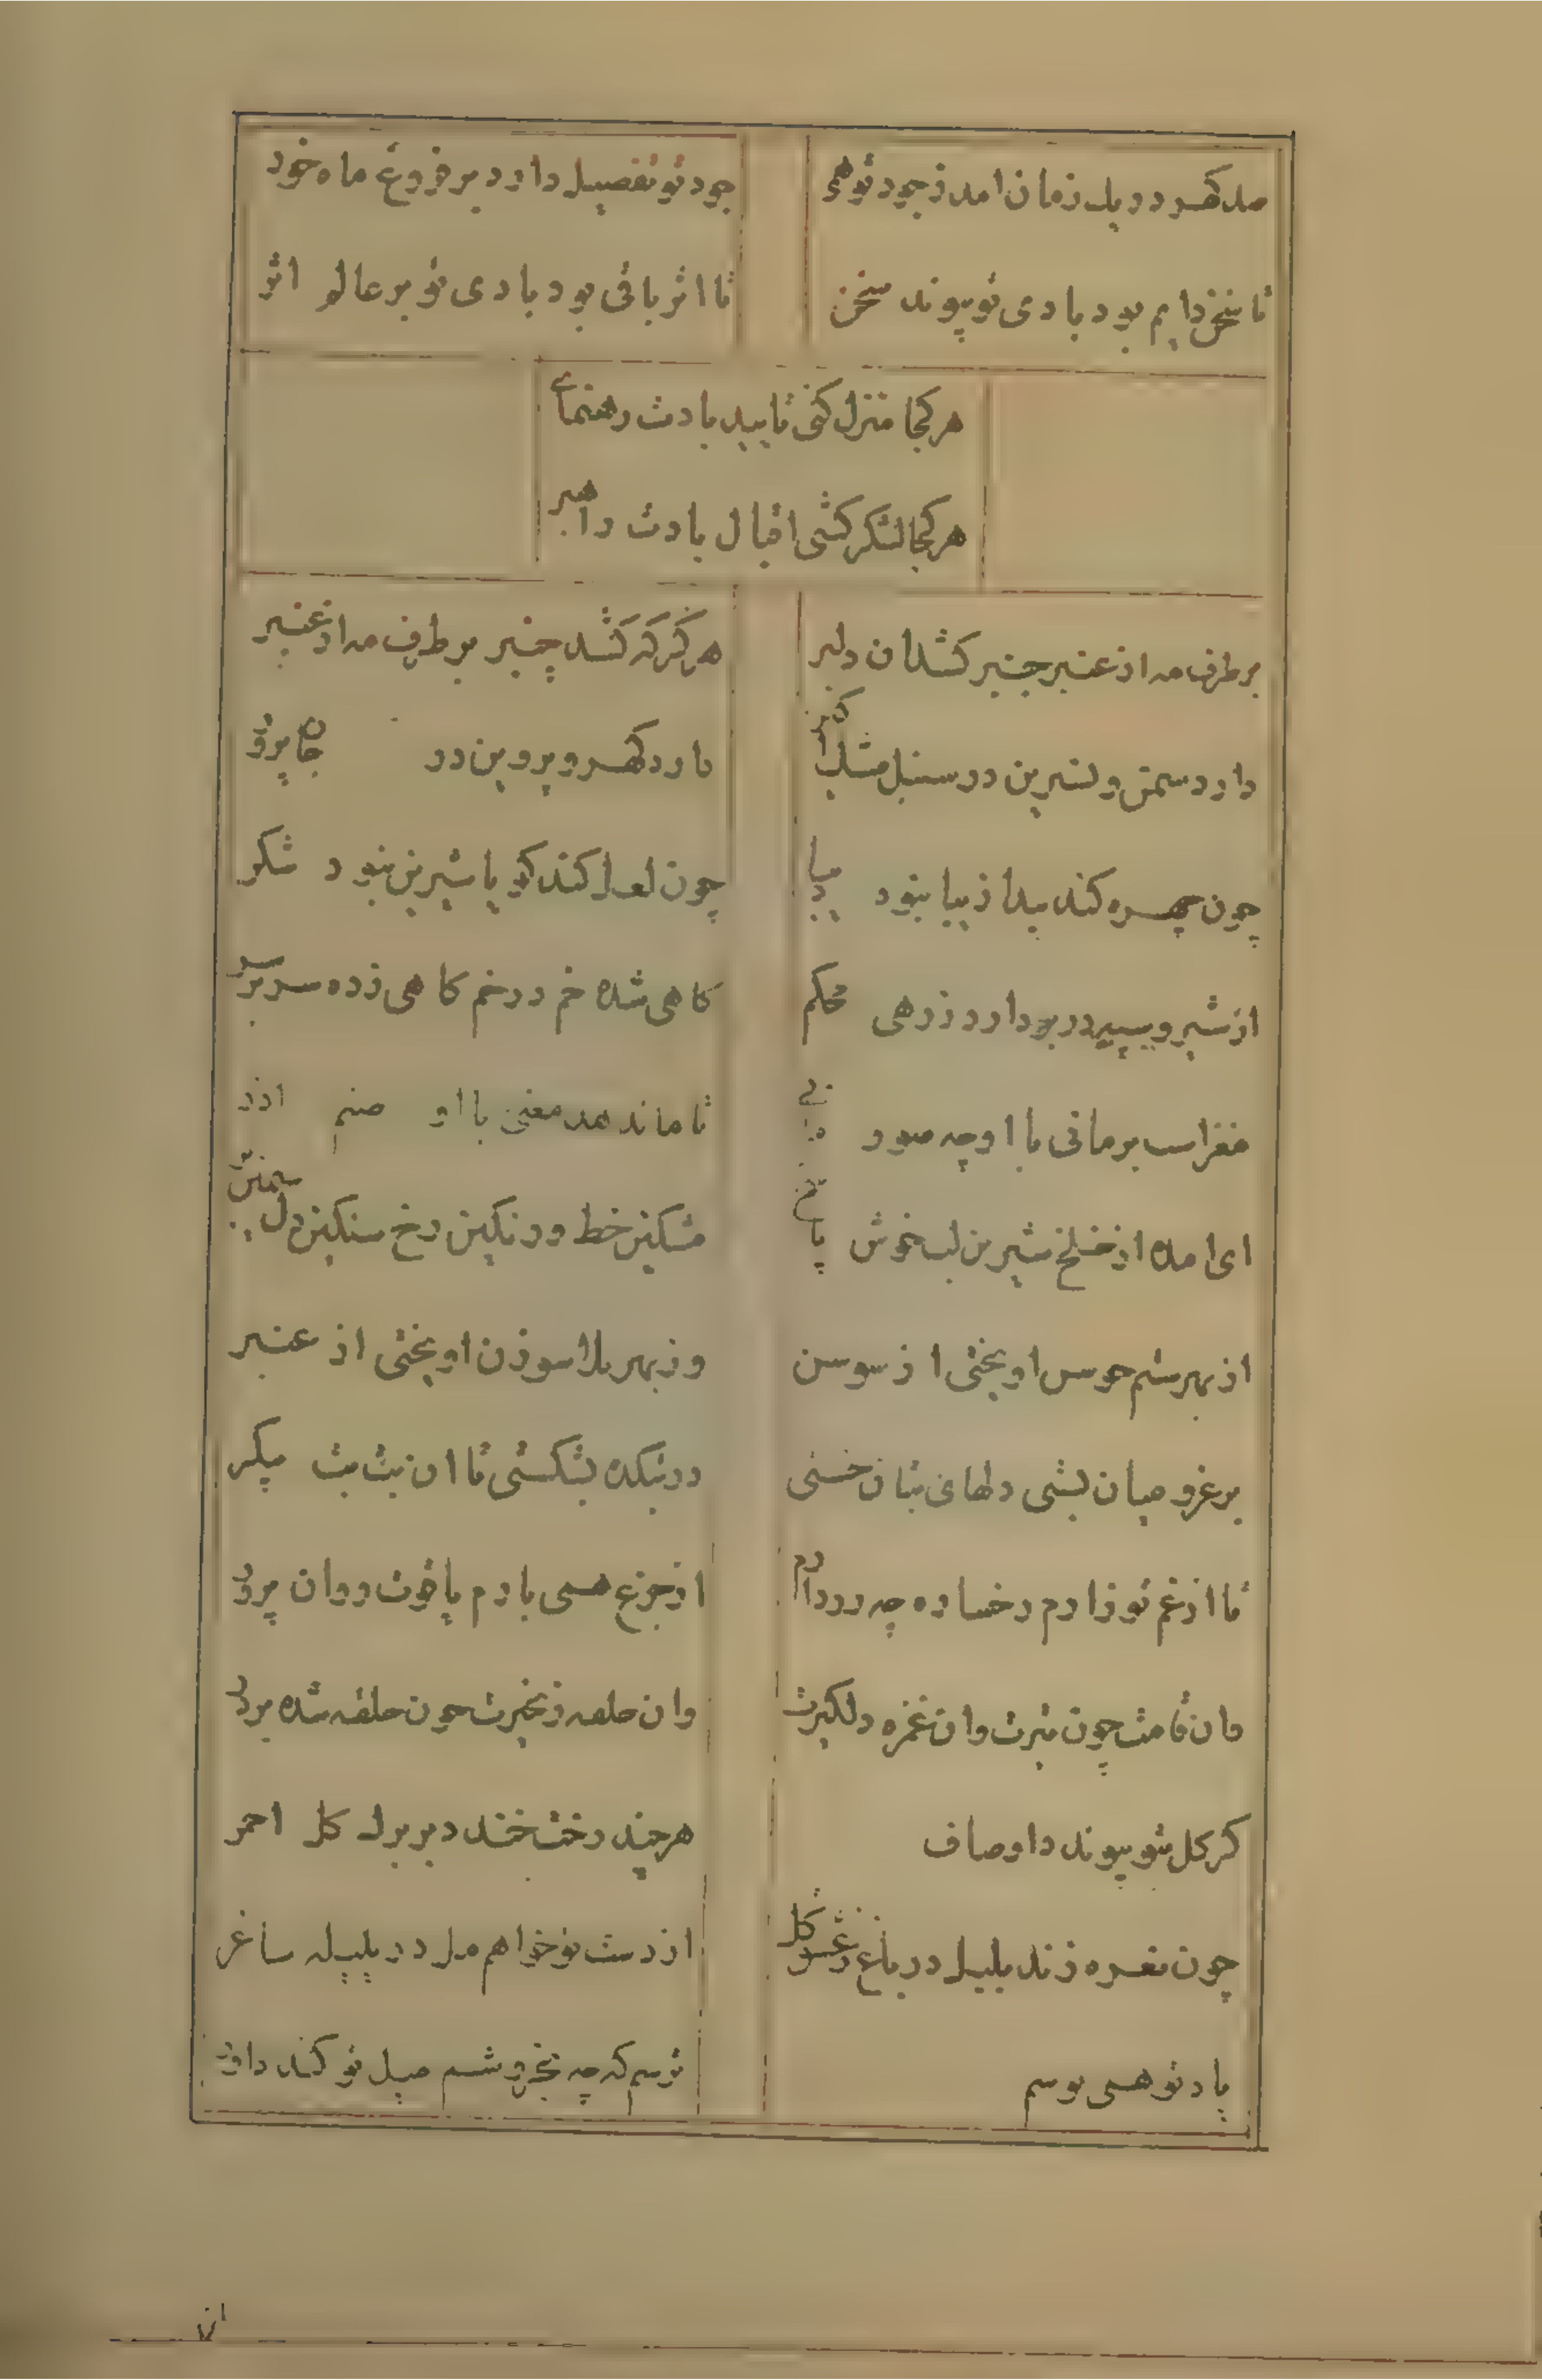 صد گهر در یک زمان امد ز جود تو همی
جود تو تفصیل دارد بر فروغ ماه خود
تا سخن دایم بود بادی تو پیوند سخن
تا اثر باقی بود بادی تو بر عالم اثر
هر کجا منزل کنی تایید بادت رهنمای
هر کجا لشکر کشی اقبال بادت راهبر
بر طرف مه از عنبر چنبر کشد ان دلبر
هرگز که کشد چنبر بر طرف مه از عنبر
دارد سمن و نسرین در سنبل مشک
نارد گهر و پروین در جان پرور
چون چهره کند پیدا زیبا نبود دیبا
چون لعل کند گویا شیرین نبود شکر
از شیر و پیر در بر دارد زرهی محکم
کاهی شده خم در خم کاهی زده سر بر سر
بر مانی با او چه صور
تا ماند معنی با او صنم ازر
ای امده از خلخ شیرین لب خوش پاسخ
مشکین خط و رنگین رخ سنگین دل سیمین بر
از بهر ستم اویختی از سوسن
وز بهر بلا سوزن اویختی از عنبر
بر غرو میان بستی دلهای بتان خستی
در بتکده بشکستی تا ان بت بت پیکر
تا از غم تو زارم رخساره چه زر دارم
از جزع همی بارم یاقوت روان پر زر
وان قامت چون تیرت وان غمزه دلگیرت
وان حلقه زنجیرت چون حلقه شده بر در
گر گل شو پیوند را وصاف
هر چند رخت خندد بر برک کل احمر
چون نعره زند بلبل در باغ ز عشق گل
از دست تو خواهم مل در بلبله ساغر
یاد تو همی بوسم
ترسم که چه بخروشم میل تو کند
ان